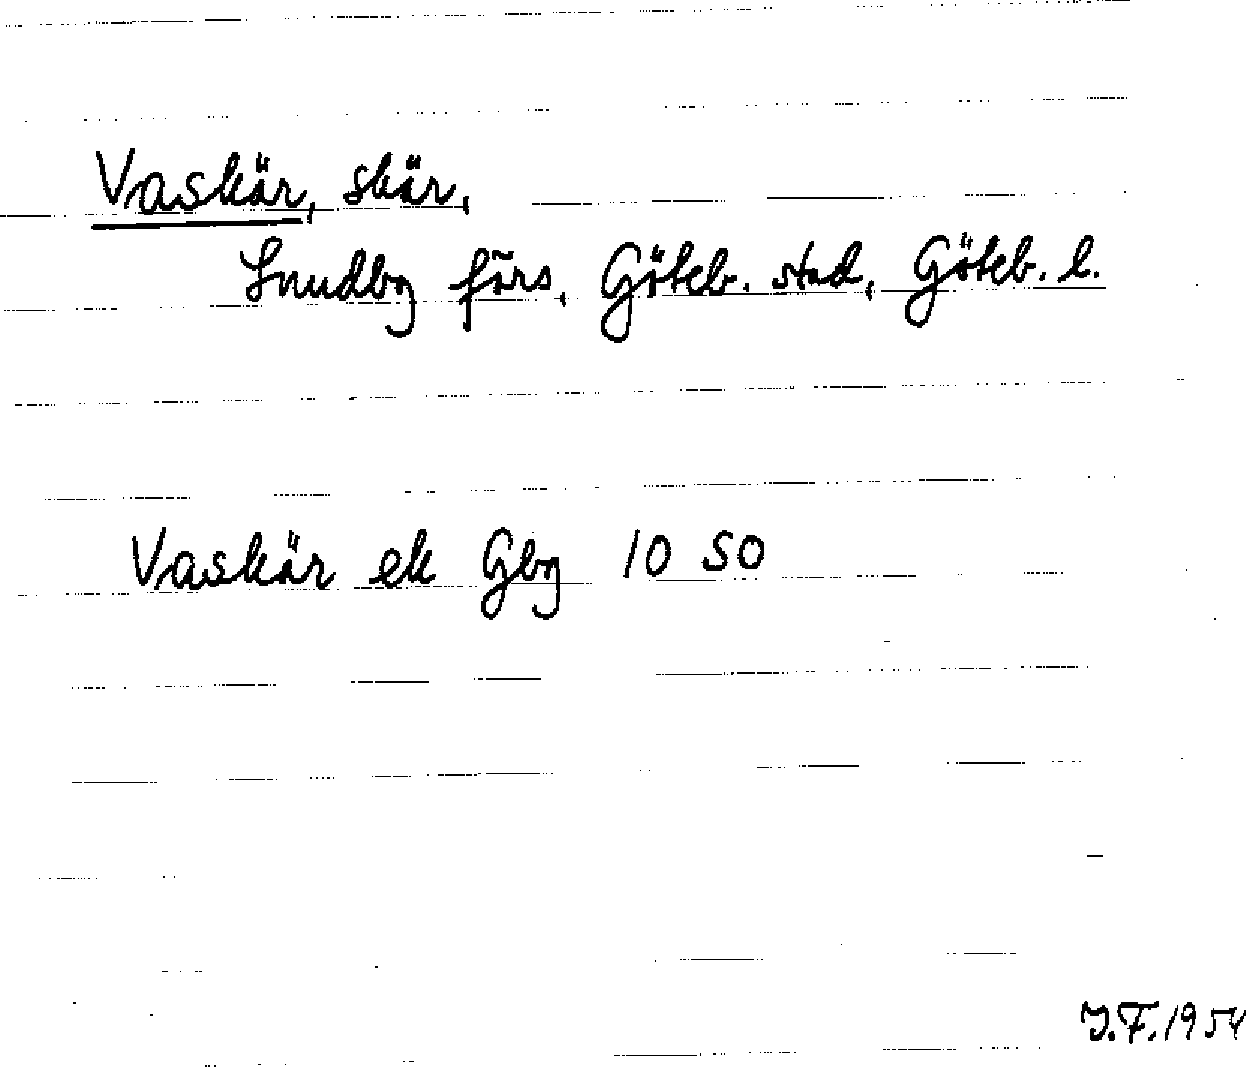 Vaskär, skär,
Lundby förs, Göteb. stad, Göteb. l.
Vaskär ek Gbg 10 SO
J.F. 1954